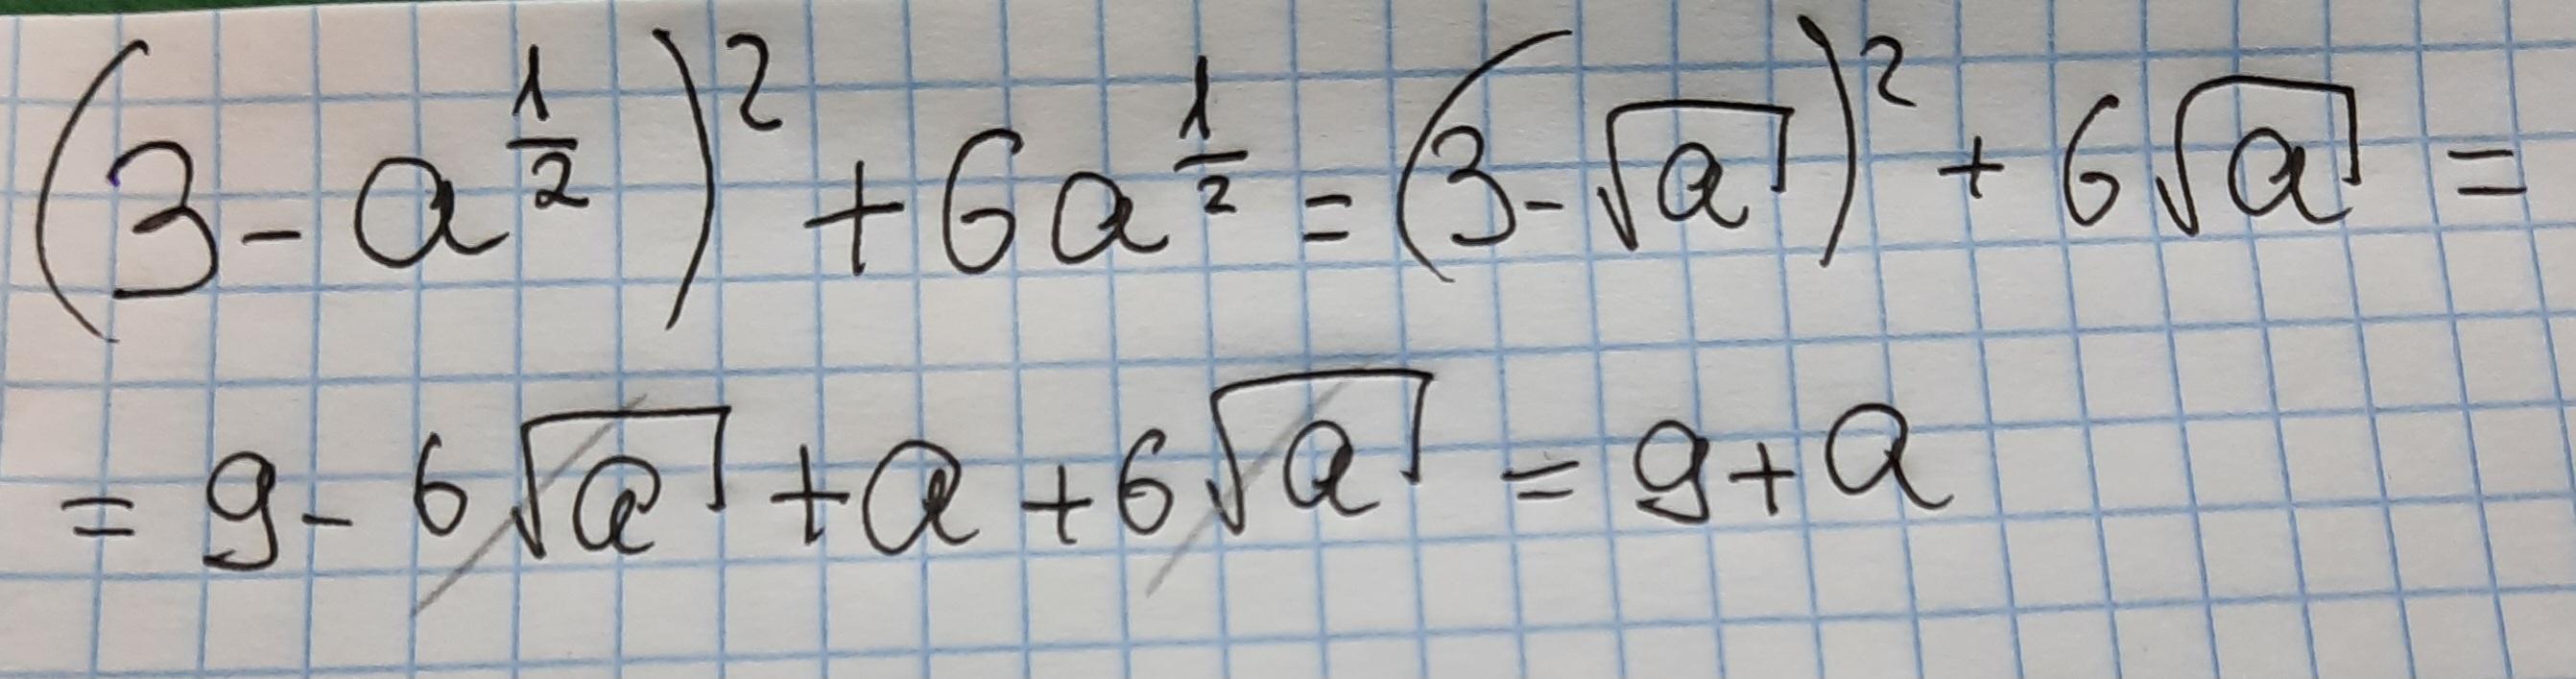 (3-a^{\frac{1}{2}})^2+6a^{\frac{1}{2}}=(3-\sqrt{a})^2+6\sqrt{a}=
=9-6\sqrt{a}+a+6\sqrt{a}=9+a